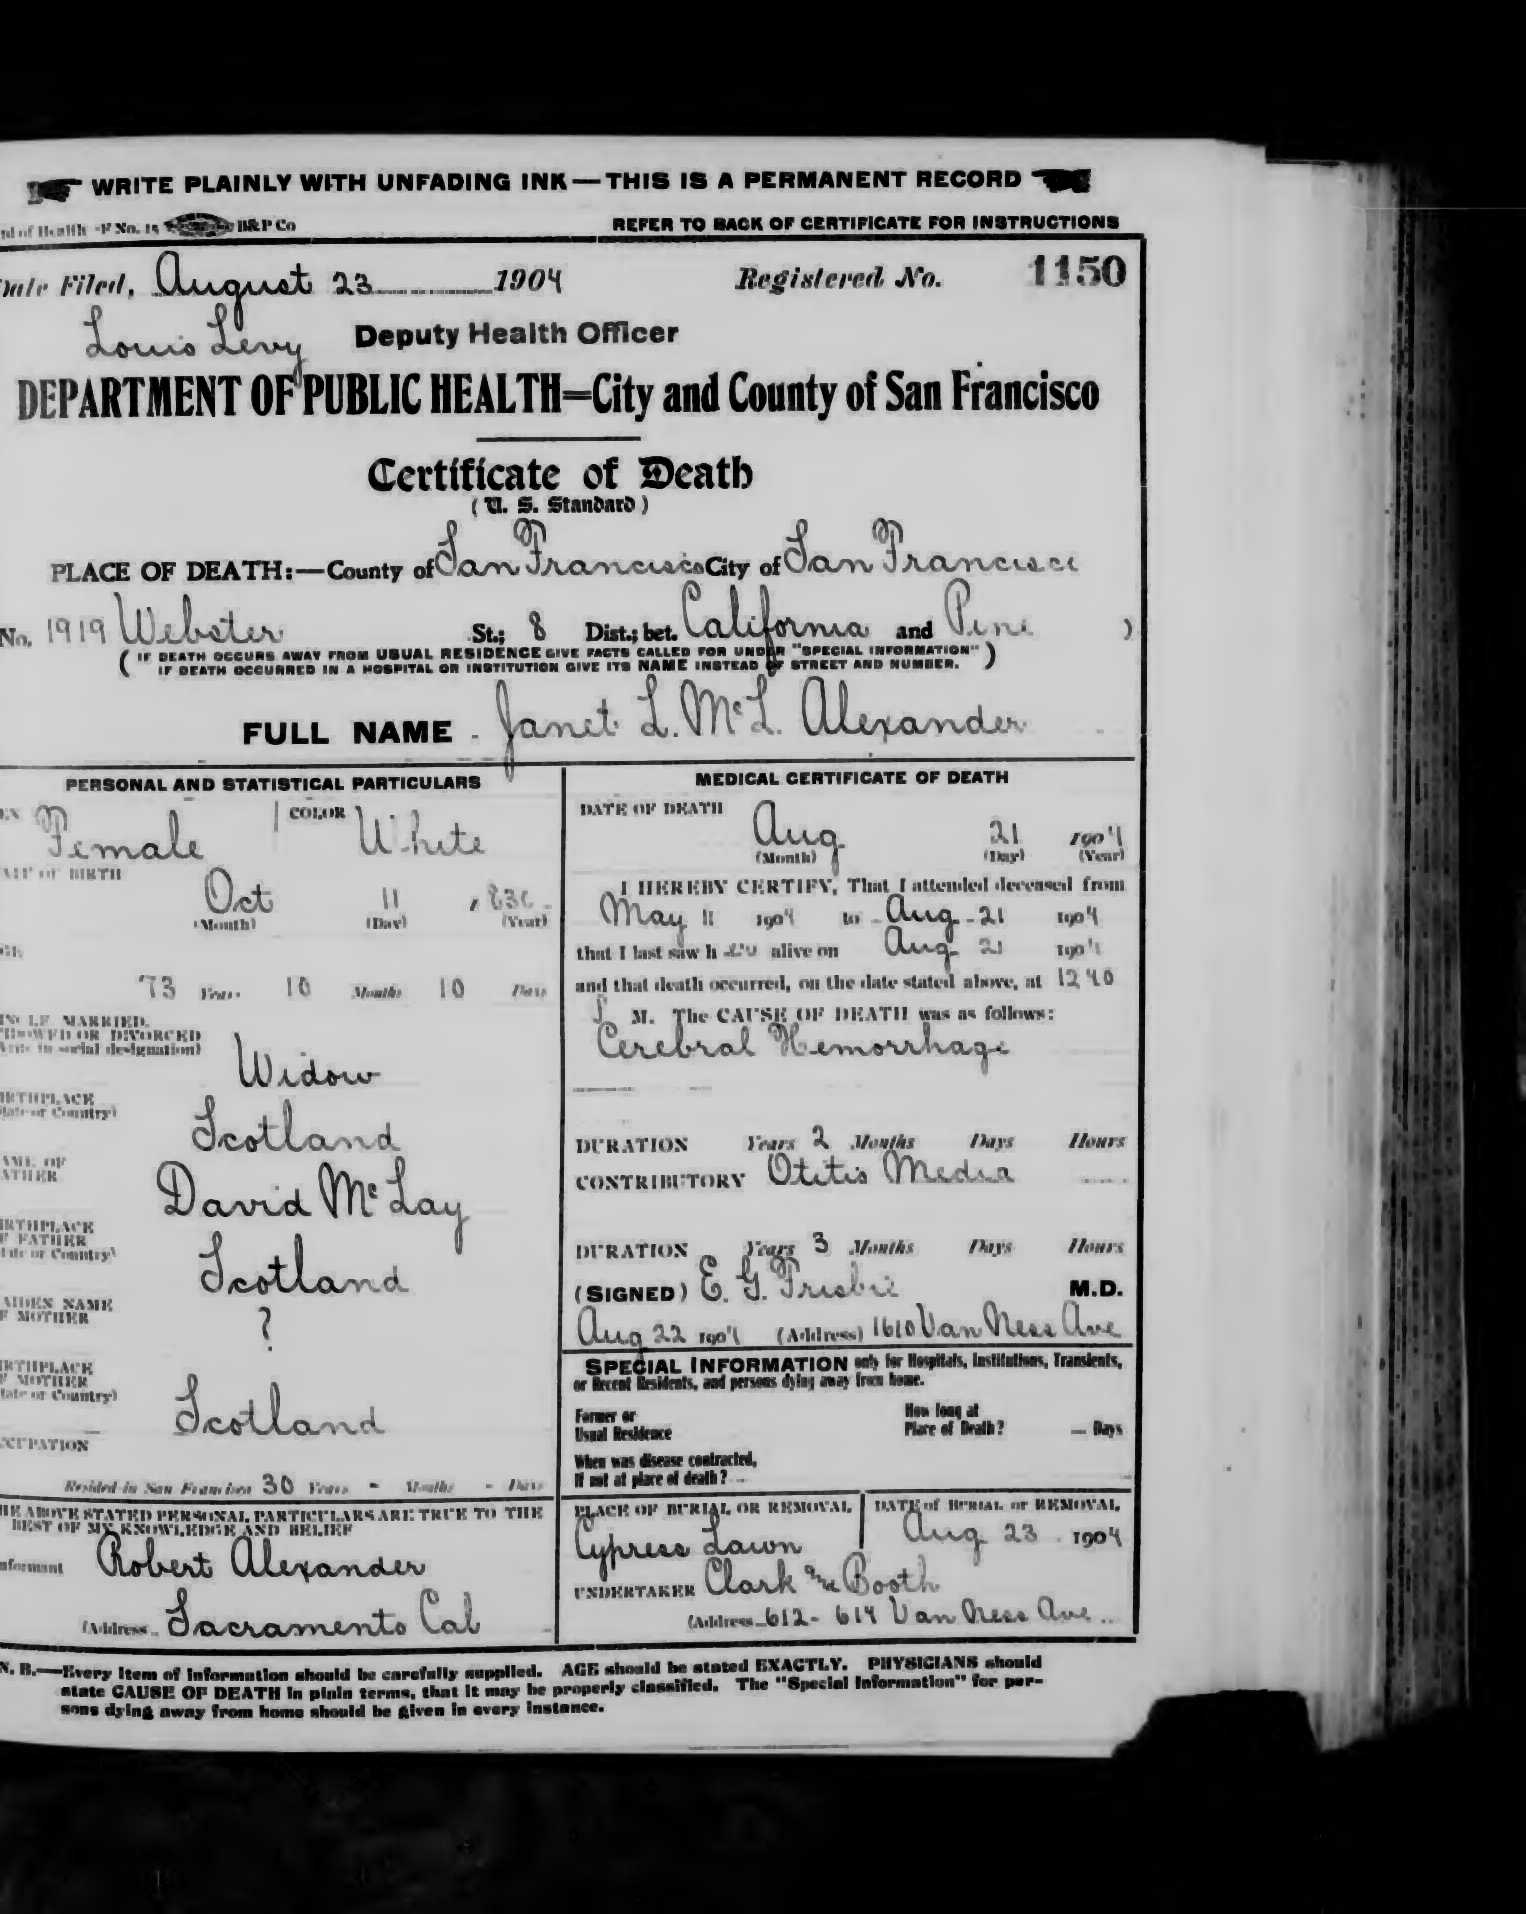 WRITE PLAINLY WITH UNFADING INK—THIS IS A PERMANENT RECORD
rd of Health -F No. 15 B&P Co REFER TO BACK OF CERTIFICATE FOR INSTRUCTIONS
Date Filed, August 23 1904 Registered No. 1150
Louis Levy Deputy Health Officer
DEPARTMENT OF PUBLIC HEALTH=City and County of San Francisco
Certificate of Death
(U. S. Standard)
PLACE OF DEATH:—County of San Francisco City of San Francisco
No. 1919 Webster St.; 8 Dist.; bet. California and Pine )
( IF DEATH OCCURS AWAY FROM USUAL RESIDENCE GIVE FACTS CALLED FOR UNDER "SPECIAL INFORMATION" )
IF DEATH OCCURRED IN A HOSPITAL OR INSTITUTION GIVE ITS NAME INSTEAD OF STREET AND NUMBER.
FULL NAME - Janet L. McL. Alexander
PERSONAL AND STATISTICAL PARTICULARS
EX Female COLOR White
ATE OF BIRTH
Oct 11
(Month) (Day) (Year)
GE
73 Years 10 Months 10 Days
INGLE MARRIED,
IDOWED OR DIVORCED
Write in social designation)
Widow
IRTHPLACE
State or Country)
Scotland
AME OF
ATHER
David McLay
IRTHPLACE
F FATHER
State or Country)
Scotland
AIDEN NAME
F MOTHER
?
IRTHPLACE
F MOTHER
State or Country)
Scotland
CCUPATION
Resided in San Francisco 30 Years - Months - Days
HE ABOVE STATED PERSONAL PARTICULARS ARE TRUE TO THE
BEST OF MY KNOWLEDGE AND BELIEF
nformant Robert Alexander
(Address Sacramento Cal
MEDICAL CERTIFICATE OF DEATH
DATE OF DEATH
Aug 21 1904
(Month) (Day) (Year)
I HEREBY CERTIFY, That I attended deceased from
May 11 1904 to Aug-21 1904
that I last saw h er alive on Aug 21 1904
and that death occurred, on the date stated above, at 12 40
P M. The CAUSE OF DEATH was as follows:
Cerebral Hemorrhage
DURATION Years 2 Months Days Hours
CONTRIBUTORY Otitis Media
DURATION Years 3 Months Days Hours
(SIGNED) E. G. Frisbie M.D.
Aug 22 1904 (Address) 1610 Van Ness Ave
SPECIAL INFORMATION only for Hospitals, Institutions, Transients,
or Recent Residents, and persons dying away from home.
Former or
Usual Residence
How long at
Place of Death? — Days
When was disease contracted,
If not at place of death?
PLACE OF BURIAL OR REMOVAL
Cypress Lawn
DATE of BURIAL or REMOVAL
Aug 23 1904
UNDERTAKER Clark and Booth
(Address 612-614 Van Ness Ave
N. B.—Every item of information should be carefully supplied. AGE should be stated EXACTLY. PHYSICIANS should
state CAUSE OF DEATH in plain terms, that it may be properly classified. The "Special Information" for per-
sons dying away from home should be given in every instance.